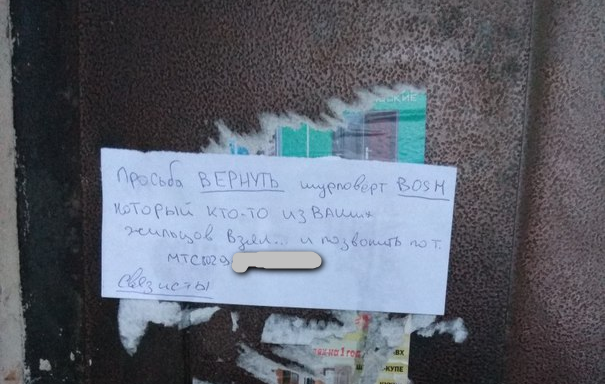 СКИЕ
Просьба ВЕРНУТЬ шуруповёрт BOSH
который кто-то из ваших
жильцов взял... и позвонить по т.
МТС
связисты
на 1 год
КУПЕ